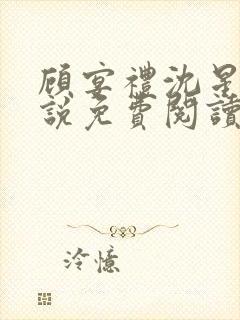 顾宴禮沈星
說免費閱讀
泠憶